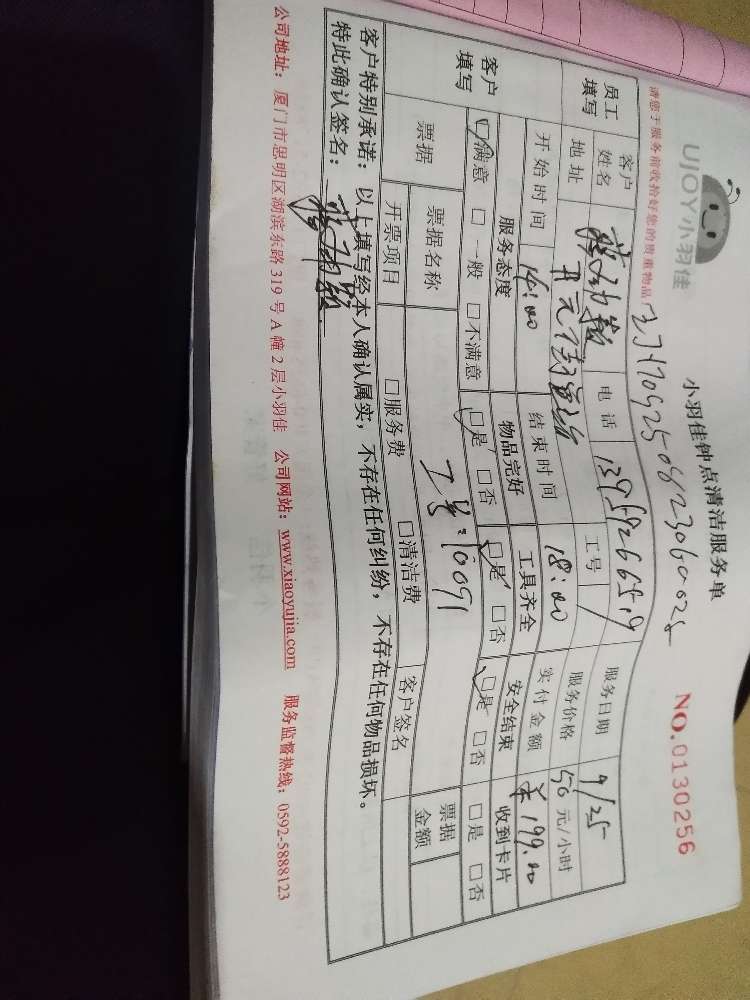 UJOY小羽佳
小羽佳钟点清洁服务单
NO.0130256
请您于服务前收拾好您的贵重物品!
员工填写
客户姓名
电话
服务日期 9/25
地址
工号 /
服务价格 50 元/小时
开始时间 14:00 结束时间 18:00 实付金额 ¥199.00
客户填写
服务态度 物品完好 工具齐全 安全结束 收到卡片
☑满意 □一般 □不满意 ☑是 □否 ☑是 □否 ☑是 □否 □是 □否
票据
票据名称
票据金额
开票项目 □服务费 □清洁费 客户签名
客户特别承诺:以上填写经本人确认属实,不存在任何纠纷,不存在任何物品损坏。
特此确认签名:
公司地址:厦门市思明区湖滨东路 319 号 A 幢 2 层小羽佳 公司网站:www.xiaoyujia.com 服务监督热线:0592-5888123